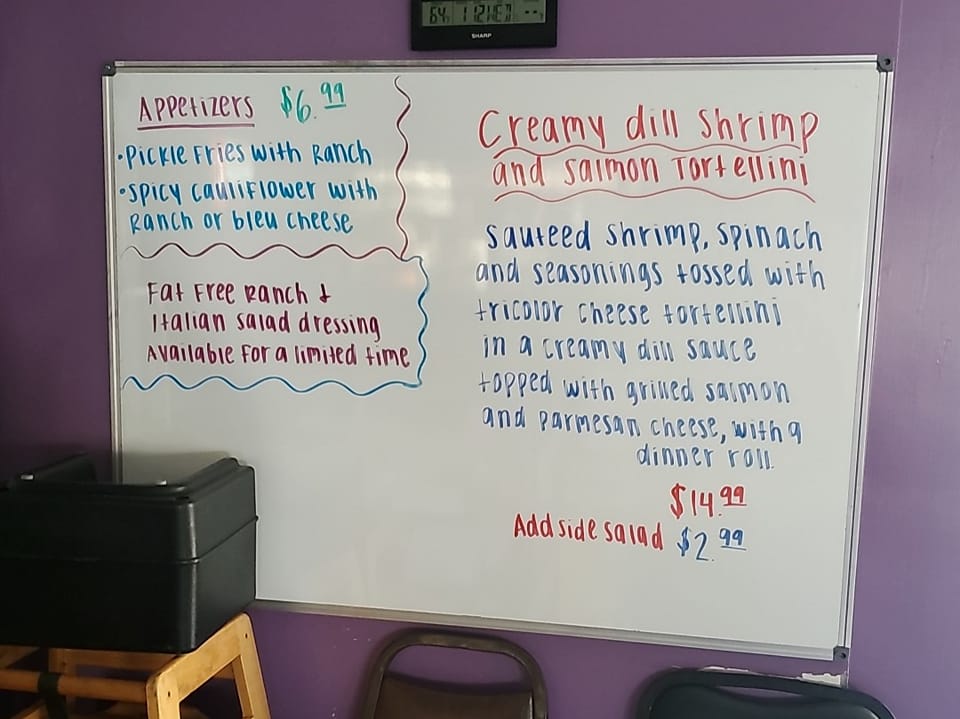 SHARP
APPetizers $6.99
•Pickle Fries with Ranch
•Spicy cauliFlower with
Ranch or bleu cheese
Fat Free Ranch &
Italian salad dressing
Available For a limited time
Creamy dill shrimp
and salmon Tortellini
sauteed shrimp, spinach
and seasonings tossed with
tricolor cheese tortellini
in a creamy dill sauce
topped with grilled salmon
and parmesan cheese, with a
dinner roll.
$14.99
Add side salad $2.99